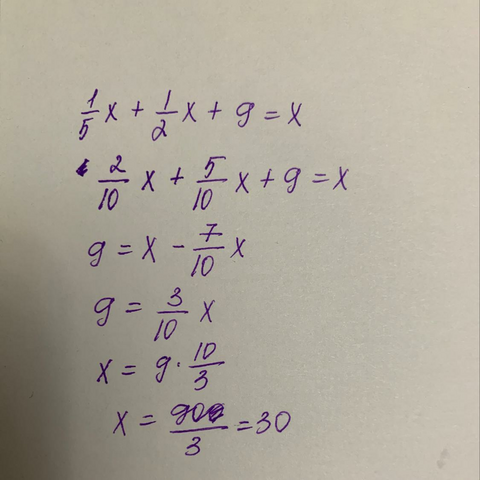 1/5 x + 1/2 x + 9 = x
2/10 x + 5/10 x + 9 = x
9 = x - 7/10 x
9 = 3/10 x
x = 9 · 10/3
x = 90/3 = 30